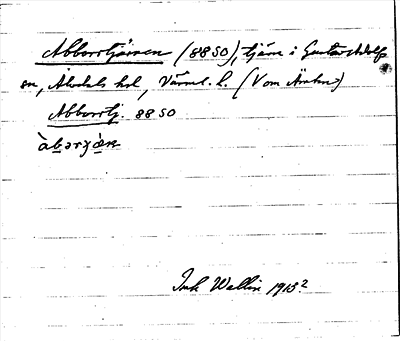 Abborrtjärnen (88 SO), tjärn i Gustav Adolfs
sn, Älvdals hd, Värml. l. (Von Aruhn)
Abborrtj. 88 SO
àbǝrʒæ̀n
Ink Wallin 1913?